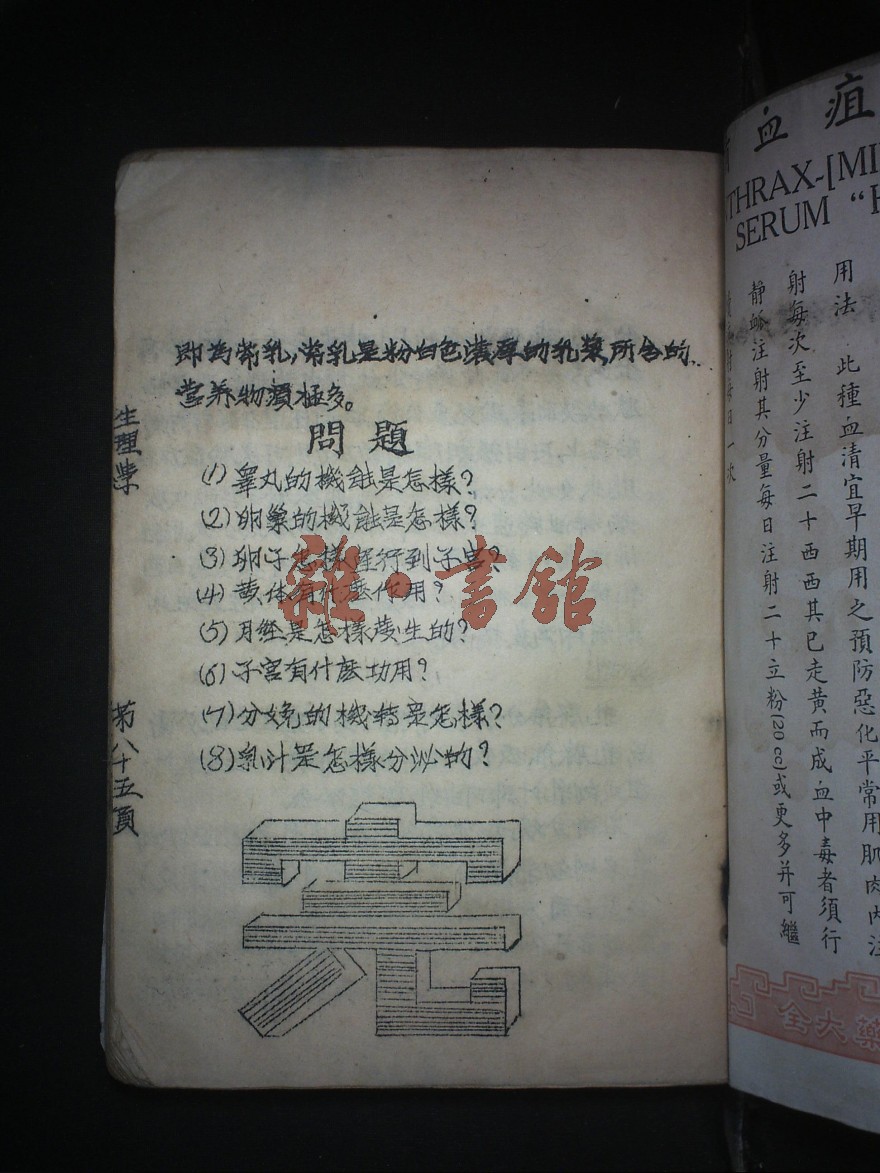 即為常乳,常乳是粉白色濃厚的乳漿,所含的
营养物質極多。
問題
(1)睾丸的機能是怎樣?
(2)卵巢的機能是怎樣?
(3)卵子怎樣運行到子宫?
(4)黄体有什麽作用?
(5)月經是怎樣發生的?
(6)子宫有什麽功用?
(7)分娩的機轉是怎樣?
(8)乳汁是怎樣分泌的?
完
生理学
第八十五頁
雜·書館
血疽
THRAX-[MI
SERUM “H
用法 此種血清宜早期用之預防惡化平常用肌肉内注
射每次至少注射二十西西其已走黄而成血中毒者須行
静脈注射其分量每日注射二十立粉(20 cc)或更多并可繼
射每日一次
大藥